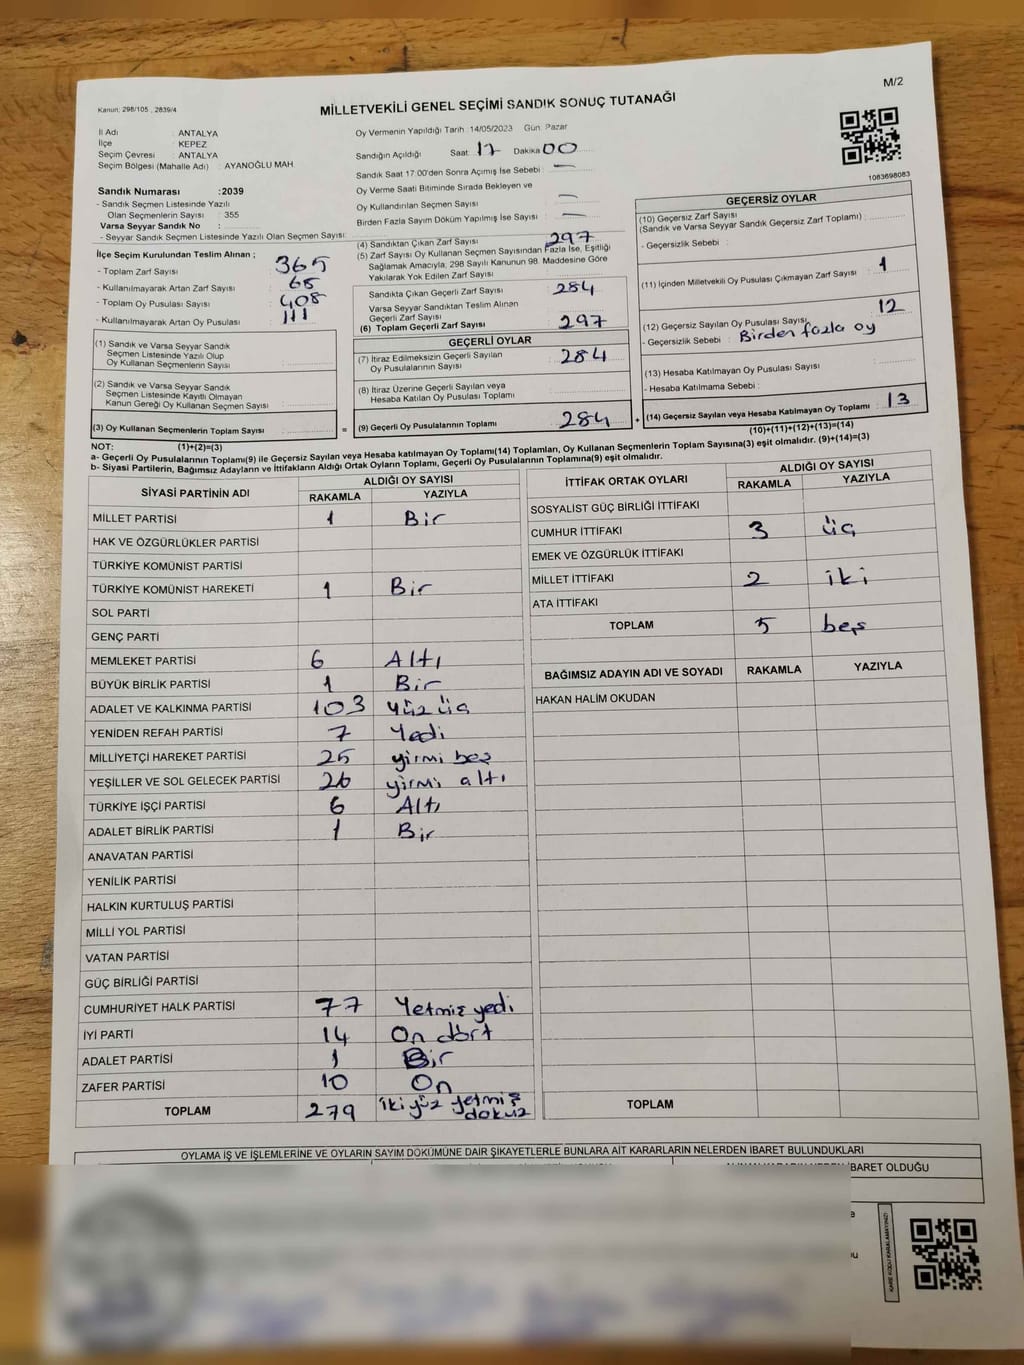 M/2
Kanun: 298/105 , 2839/4
MİLLETVEKİLİ GENEL SEÇİMİ SANDIK SONUÇ TUTANAĞI
İl Adı : ANTALYA
İlçe : KEPEZ
Seçim Çevresi : ANTALYA
Seçim Bölgesi (Mahalle Adı) : AYANOĞLU MAH.
Sandık Numarası :2039
- Sandık Seçmen Listesinde Yazılı
Olan Seçmenlerin Sayısı : 355
Varsa Seyyar Sandık No :
- Seyyar Sandık Seçmen Listesinde Yazılı Olan Seçmen Sayısı:
İlçe Seçim Kurulundan Teslim Alınan ;
- Toplam Zarf Sayısı : 365
- Kullanılmayarak Artan Zarf Sayısı : 68
- Toplam Oy Pusulası Sayısı : 408
- Kullanılmayarak Artan Oy Pusulası : 111
(1) Sandık ve Varsa Seyyar Sandık
Seçmen Listesinde Yazılı Olup
Oy Kullanan Seçmenlerin Sayısı :
(2) Sandık ve Varsa Seyyar Sandık
Seçmen Listesinde Kayıtlı Olmayan
Kanun Gereği Oy Kullanan Seçmen Sayısı :
(3) Oy Kullanan Seçmenlerin Toplam Sayısı :
Oy Vermenin Yapıldığı Tarih :14/05/2023 Gün: Pazar
Sandığın Açıldığı Saat: 17 Dakika: 00
Sandık Saat 17:00'den Sonra Açılmış İse Sebebi : —
Oy Verme Saati Bitiminde Sırada Bekleyen ve
Oy Kullandırılan Seçmen Sayısı : —
Birden Fazla Sayım Döküm Yapılmış İse Sayısı : —
(4) Sandıktan Çıkan Zarf Sayısı : 297
(5) Zarf Sayısı Oy Kullanan Seçmen Sayısından Fazla İse, Eşitliği
Sağlamak Amacıyla; 298 Sayılı Kanunun 98. Maddesine Göre
Yakılarak Yok Edilen Zarf Sayısı :
Sandıkta Çıkan Geçerli Zarf Sayısı : 284
Varsa Seyyar Sandıktan Teslim Alınan
Geçerli Zarf Sayısı :
(6) Toplam Geçerli Zarf Sayısı : 297
GEÇERLİ OYLAR
(7) İtiraz Edilmeksizin Geçerli Sayılan
Oy Pusulalarının Sayısı : 284
(8) İtiraz Üzerine Geçerli Sayılan veya
Hesaba Katılan Oy Pusulası Toplamı :
= (9) Geçerli Oy Pusulalarının Toplamı : 284 +
1083698083
GEÇERSİZ OYLAR
(10) Geçersiz Zarf Sayısı
(Sandık ve Varsa Seyyar Sandık Geçersiz Zarf Toplamı) :
- Geçersizlik Sebebi :
(11) İçinden Milletvekili Oy Pusulası Çıkmayan Zarf Sayısı : 1
(12) Geçersiz Sayılan Oy Pusulası Sayısı : 12
- Geçersizlik Sebebi : Birden fazla oy
(13) Hesaba Katılmayan Oy Pusulası Sayısı :
- Hesaba Katılmama Sebebi :
(14) Geçersiz Sayılan veya Hesaba Katılmayan Oy Toplamı : 13
(10)+(11)+(12)+(13)=(14)
NOT: (1)+(2)=(3)
a- Geçerli Oy Pusulalarının Toplamı(9) ile Geçersiz Sayılan veya Hesaba katılmayan Oy Toplamı(14) Toplamları, Oy Kullanan Seçmenlerin Toplam Sayısına(3) eşit olmalıdır. (9)+(14)=(3)
b- Siyasi Partilerin, Bağımsız Adayların ve İttifakların Aldığı Ortak Oyların Toplamı, Geçerli Oy Pusulalarının Toplamına(9) eşit olmalıdır.
SİYASİ PARTİNİN ADI ALDIĞI OY SAYISI
RAKAMLA YAZIYLA
MİLLET PARTİSİ 1 Bir
HAK VE ÖZGÜRLÜKLER PARTİSİ
TÜRKİYE KOMÜNİST PARTİSİ
TÜRKİYE KOMÜNİST HAREKETİ 1 Bir
SOL PARTİ
GENÇ PARTİ
MEMLEKET PARTİSİ 6 Altı
BÜYÜK BİRLİK PARTİSİ 1 Bir
ADALET VE KALKINMA PARTİSİ 103 Yüz üç
YENİDEN REFAH PARTİSİ 7 Yedi
MİLLİYETÇİ HAREKET PARTİSİ 25 yirmi beş
YEŞİLLER VE SOL GELECEK PARTİSİ 26 yirmi altı
TÜRKİYE İŞÇİ PARTİSİ 6 Altı
ADALET BİRLİK PARTİSİ 1 Bir
ANAVATAN PARTİSİ
YENİLİK PARTİSİ
HALKIN KURTULUŞ PARTİSİ
MİLLİ YOL PARTİSİ
VATAN PARTİSİ
GÜÇ BİRLİĞİ PARTİSİ
CUMHURİYET HALK PARTİSİ 77 Yetmiş yedi
İYİ PARTİ 14 On dört
ADALET PARTİSİ 1 Bir
ZAFER PARTİSİ 10 On
TOPLAM 279 iki yüz yetmiş dokuz
İTTİFAK ORTAK OYLARI ALDIĞI OY SAYISI
RAKAMLA YAZIYLA
SOSYALİST GÜÇ BİRLİĞİ İTTİFAKI
CUMHUR İTTİFAKI 3 üç
EMEK VE ÖZGÜRLÜK İTTİFAKI
MİLLET İTTİFAKI 2 iki
ATA İTTİFAKI
TOPLAM 5 beş
BAĞIMSIZ ADAYIN ADI VE SOYADI RAKAMLA YAZIYLA
HAKAN HALİM OKUDAN
TOPLAM
OYLAMA İŞ VE İŞLEMLERİNE VE OYLARIN SAYIM DÖKÜMÜNE DAİR ŞİKAYETLERLE BUNLARA AİT KARARLARIN NELERDEN İBARET BULUNDUKLARI
İBARET OLDUĞU
KARE KODU KARALAMAYINIZ!